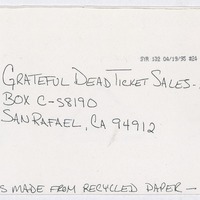 SYR 132 04/19/95 #24
GRATEFUL DEAD TICKET SALES -
BOX C-S8190
SAN RAFAEL, CA 94912
S MADE FROM RECYCLED PAPER -